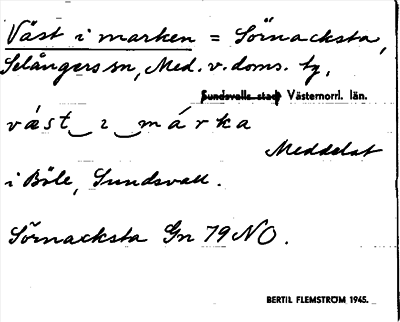 Väst i marken = Sörnacksta,
Selångers sn, Med. v. doms. tg.
Sundsvalls stad Västernorrl. län.
väst ‿ ɩ ‿ márka
Meddelat
i Böle, Sundsvall.
Sörnacksta Gn 79 NO.
BERTIL FLEMSTRÖM 1945.